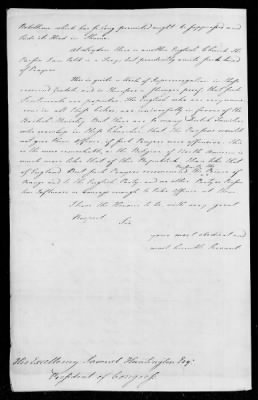 Rebellion which has so long prevailed ought to be suppressed and
hide its Head in Shame.
At Leyden there is another English Church the
Parson
of Prayers
This is quite a Work of Supererogation in these
reverend and is therefore a stronger proof, that such
Sentiments are popular. The English who are very numer-
ous in all these Cities, are universally in favour of the
British Ministry. But there are so many Dutch Families
who worship in these Churches that the Parsons would
not give them Offence, if such Prayers were offensive. This
is the more remarkable, as the Religion of North America is
much more like that of this Republick, than like that
of England. But such Prayers recommend the Prince of
Orange and to the English Party and no other Party or Person
has Influence or Courage enough to take Offence at them.
I have the Honour to be, with very great
Respect
Sir
your most obedient and
most humble Servant
His Excellency Samuel Huntington Esq.
President of Congress.